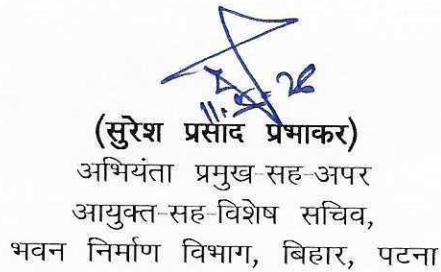 11.5.26
(सुरेश प्रसाद प्रभाकर)
अभियंता प्रमुख-सह-अपर
आयुक्त-सह-विशेष सचिव,
भवन निर्माण विभाग, बिहार, पटना